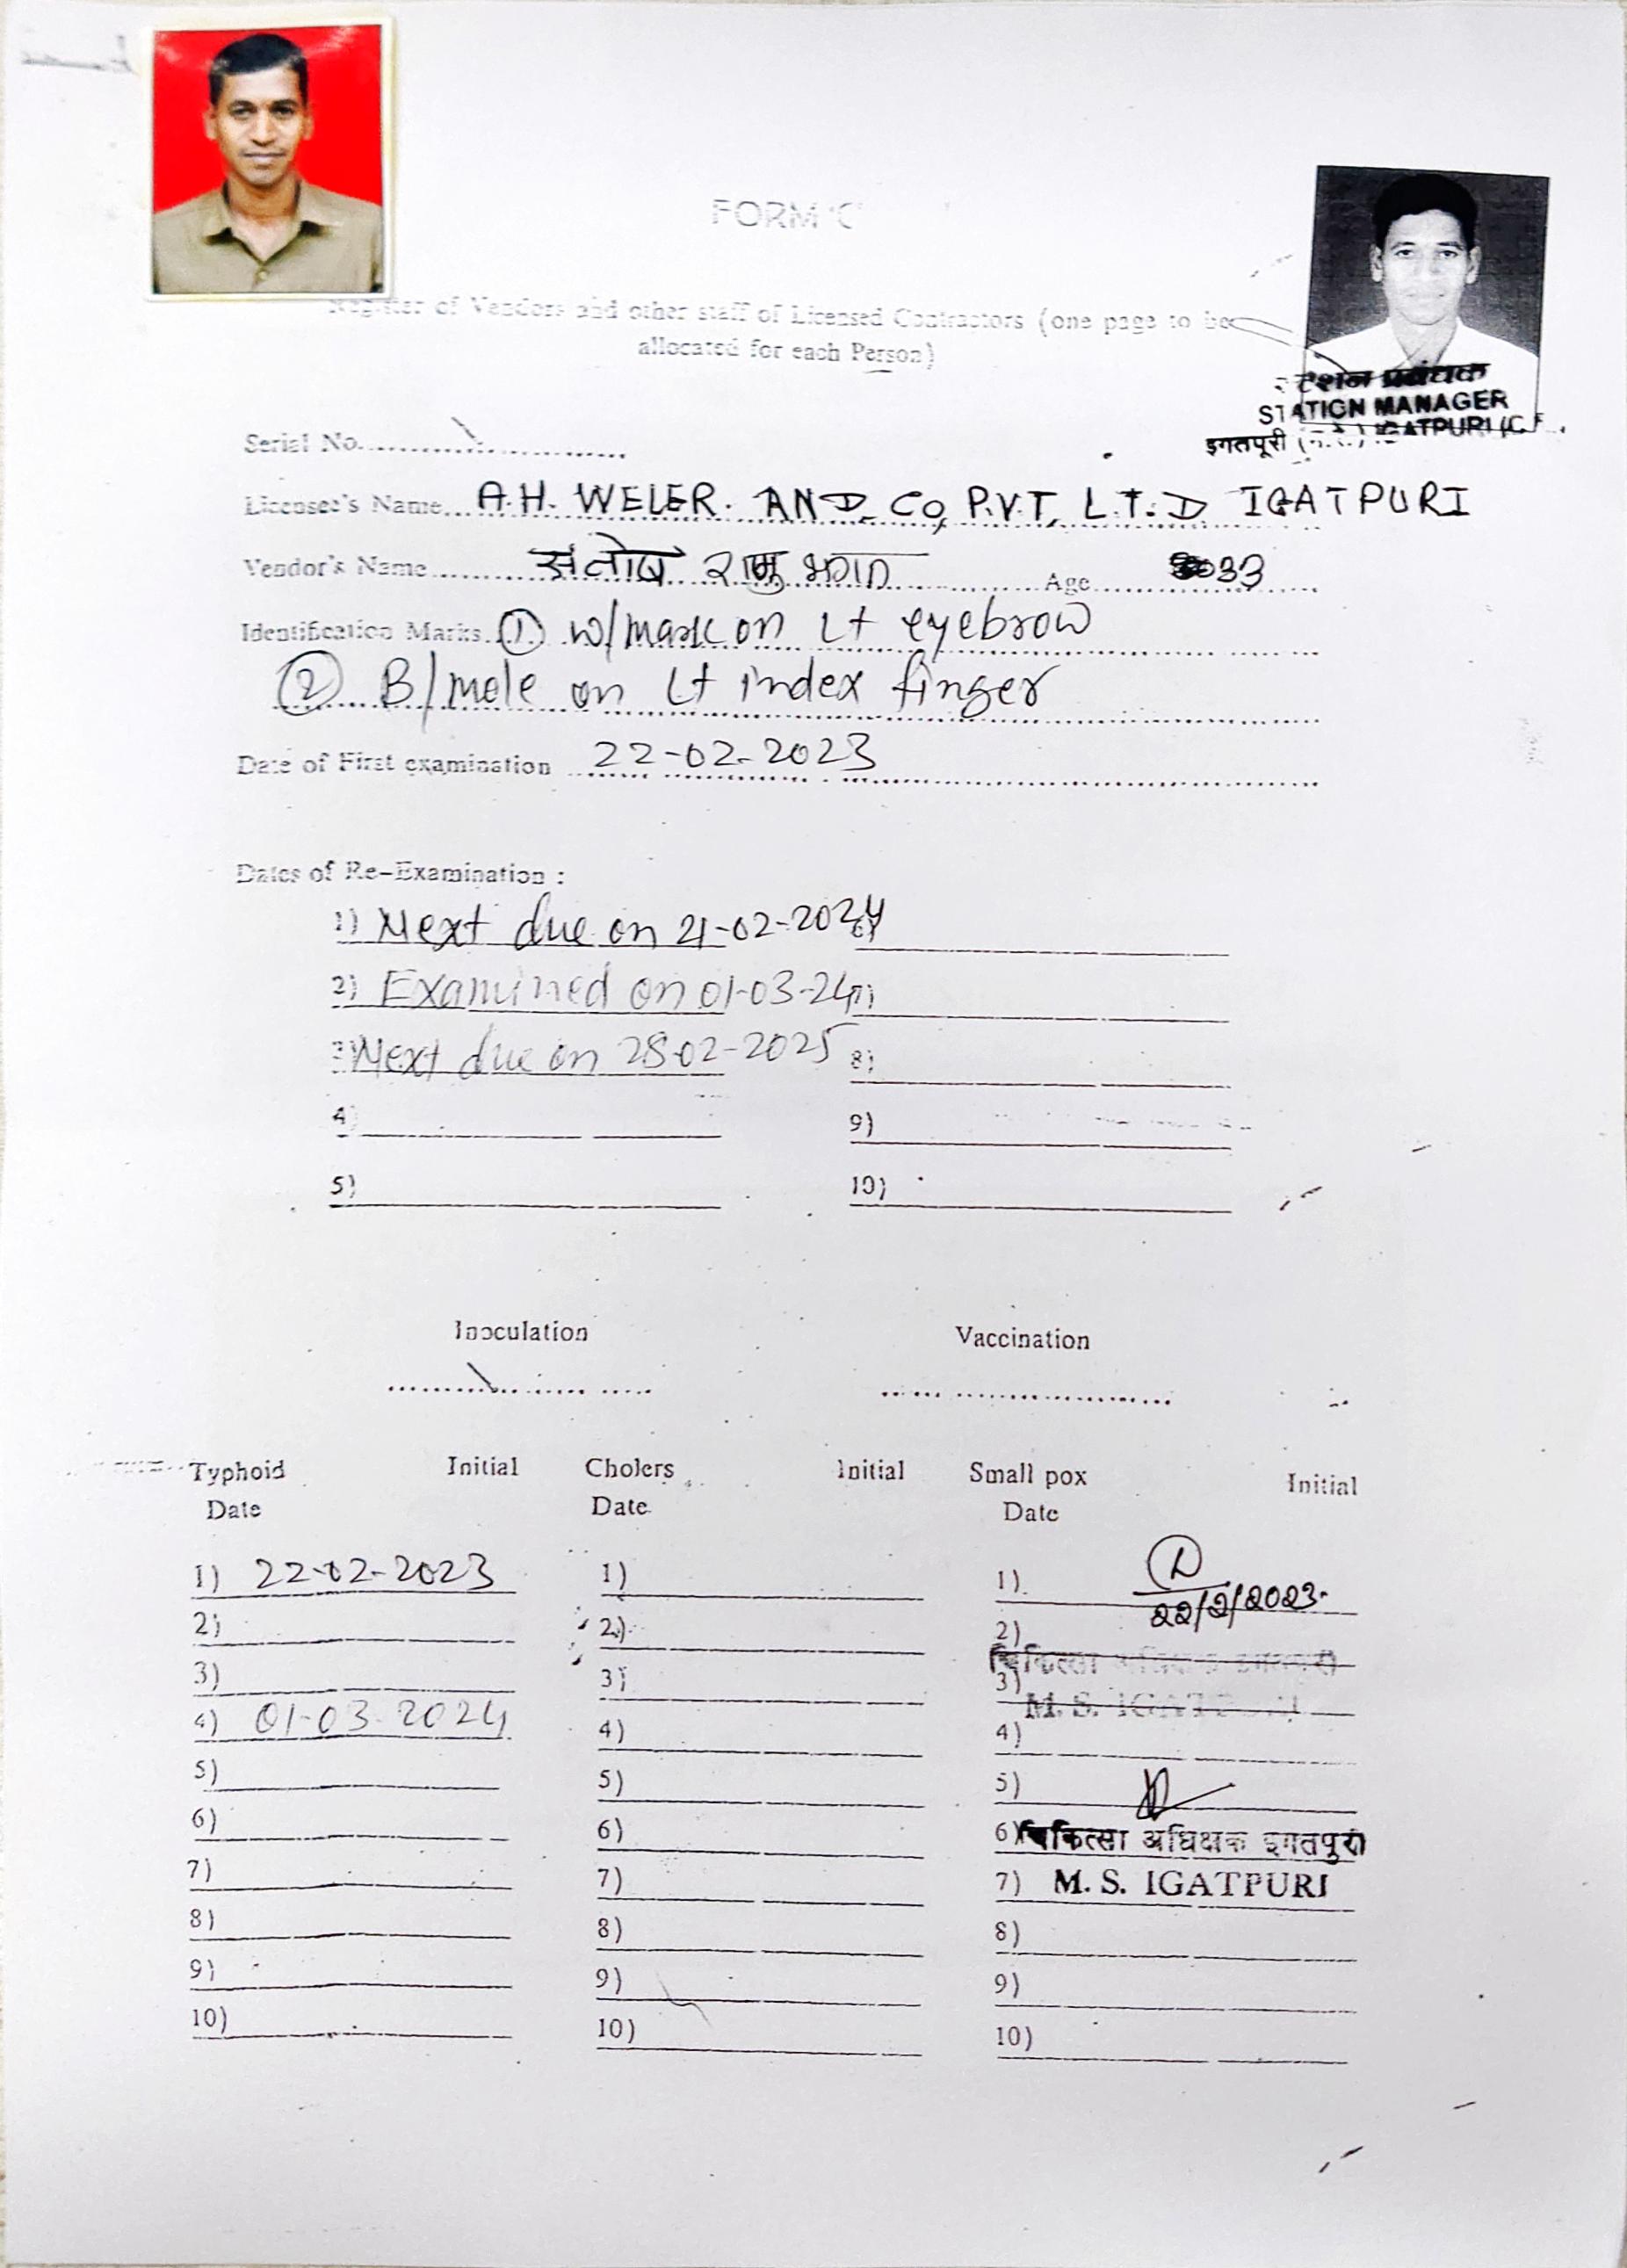 FORM 'C'
Register of Vendors and other staff of Licensed Contractors (one page to be
allocated for each Person)
स्टेशन प्रबंधक
STATION MANAGER
इगतपूरी IGATPURI
Serial No.
Licensee's Name A.H. WELER. AND. CO, P.V.T. L.T.D IGATPURI
Vendor's Name संतोष रामु Age 33
Identification Marks ① W/mark on Lt eyebrow
② B/mole on Lt index finger
Date of First examination 22-02-2023
Dates of Re-Examination :
1) Next due on 21-02-2024
2) Examined on 01-03-24
3) Next due on 28-02-2025 8)
4) 9)
5) 10)
Inoculation Vaccination
Typhoid Initial Cholers Initial Small pox Initial
Date Date Date
1) 22-02-2023 1) 1) 22/2/2023
2) 2) 2)
चिकित्सा अधिक्षक इगतपुरी
3) 3) 3)
M. S. IGATPURI
4) 01-03-2024 4) 4)
5) 5) 5)
6) 6) 6) चिकित्सा अधिक्षक इगतपुरी
7) 7) 7) M. S. IGATPURI
8) 8) 8)
9) 9) 9)
10) 10) 10)